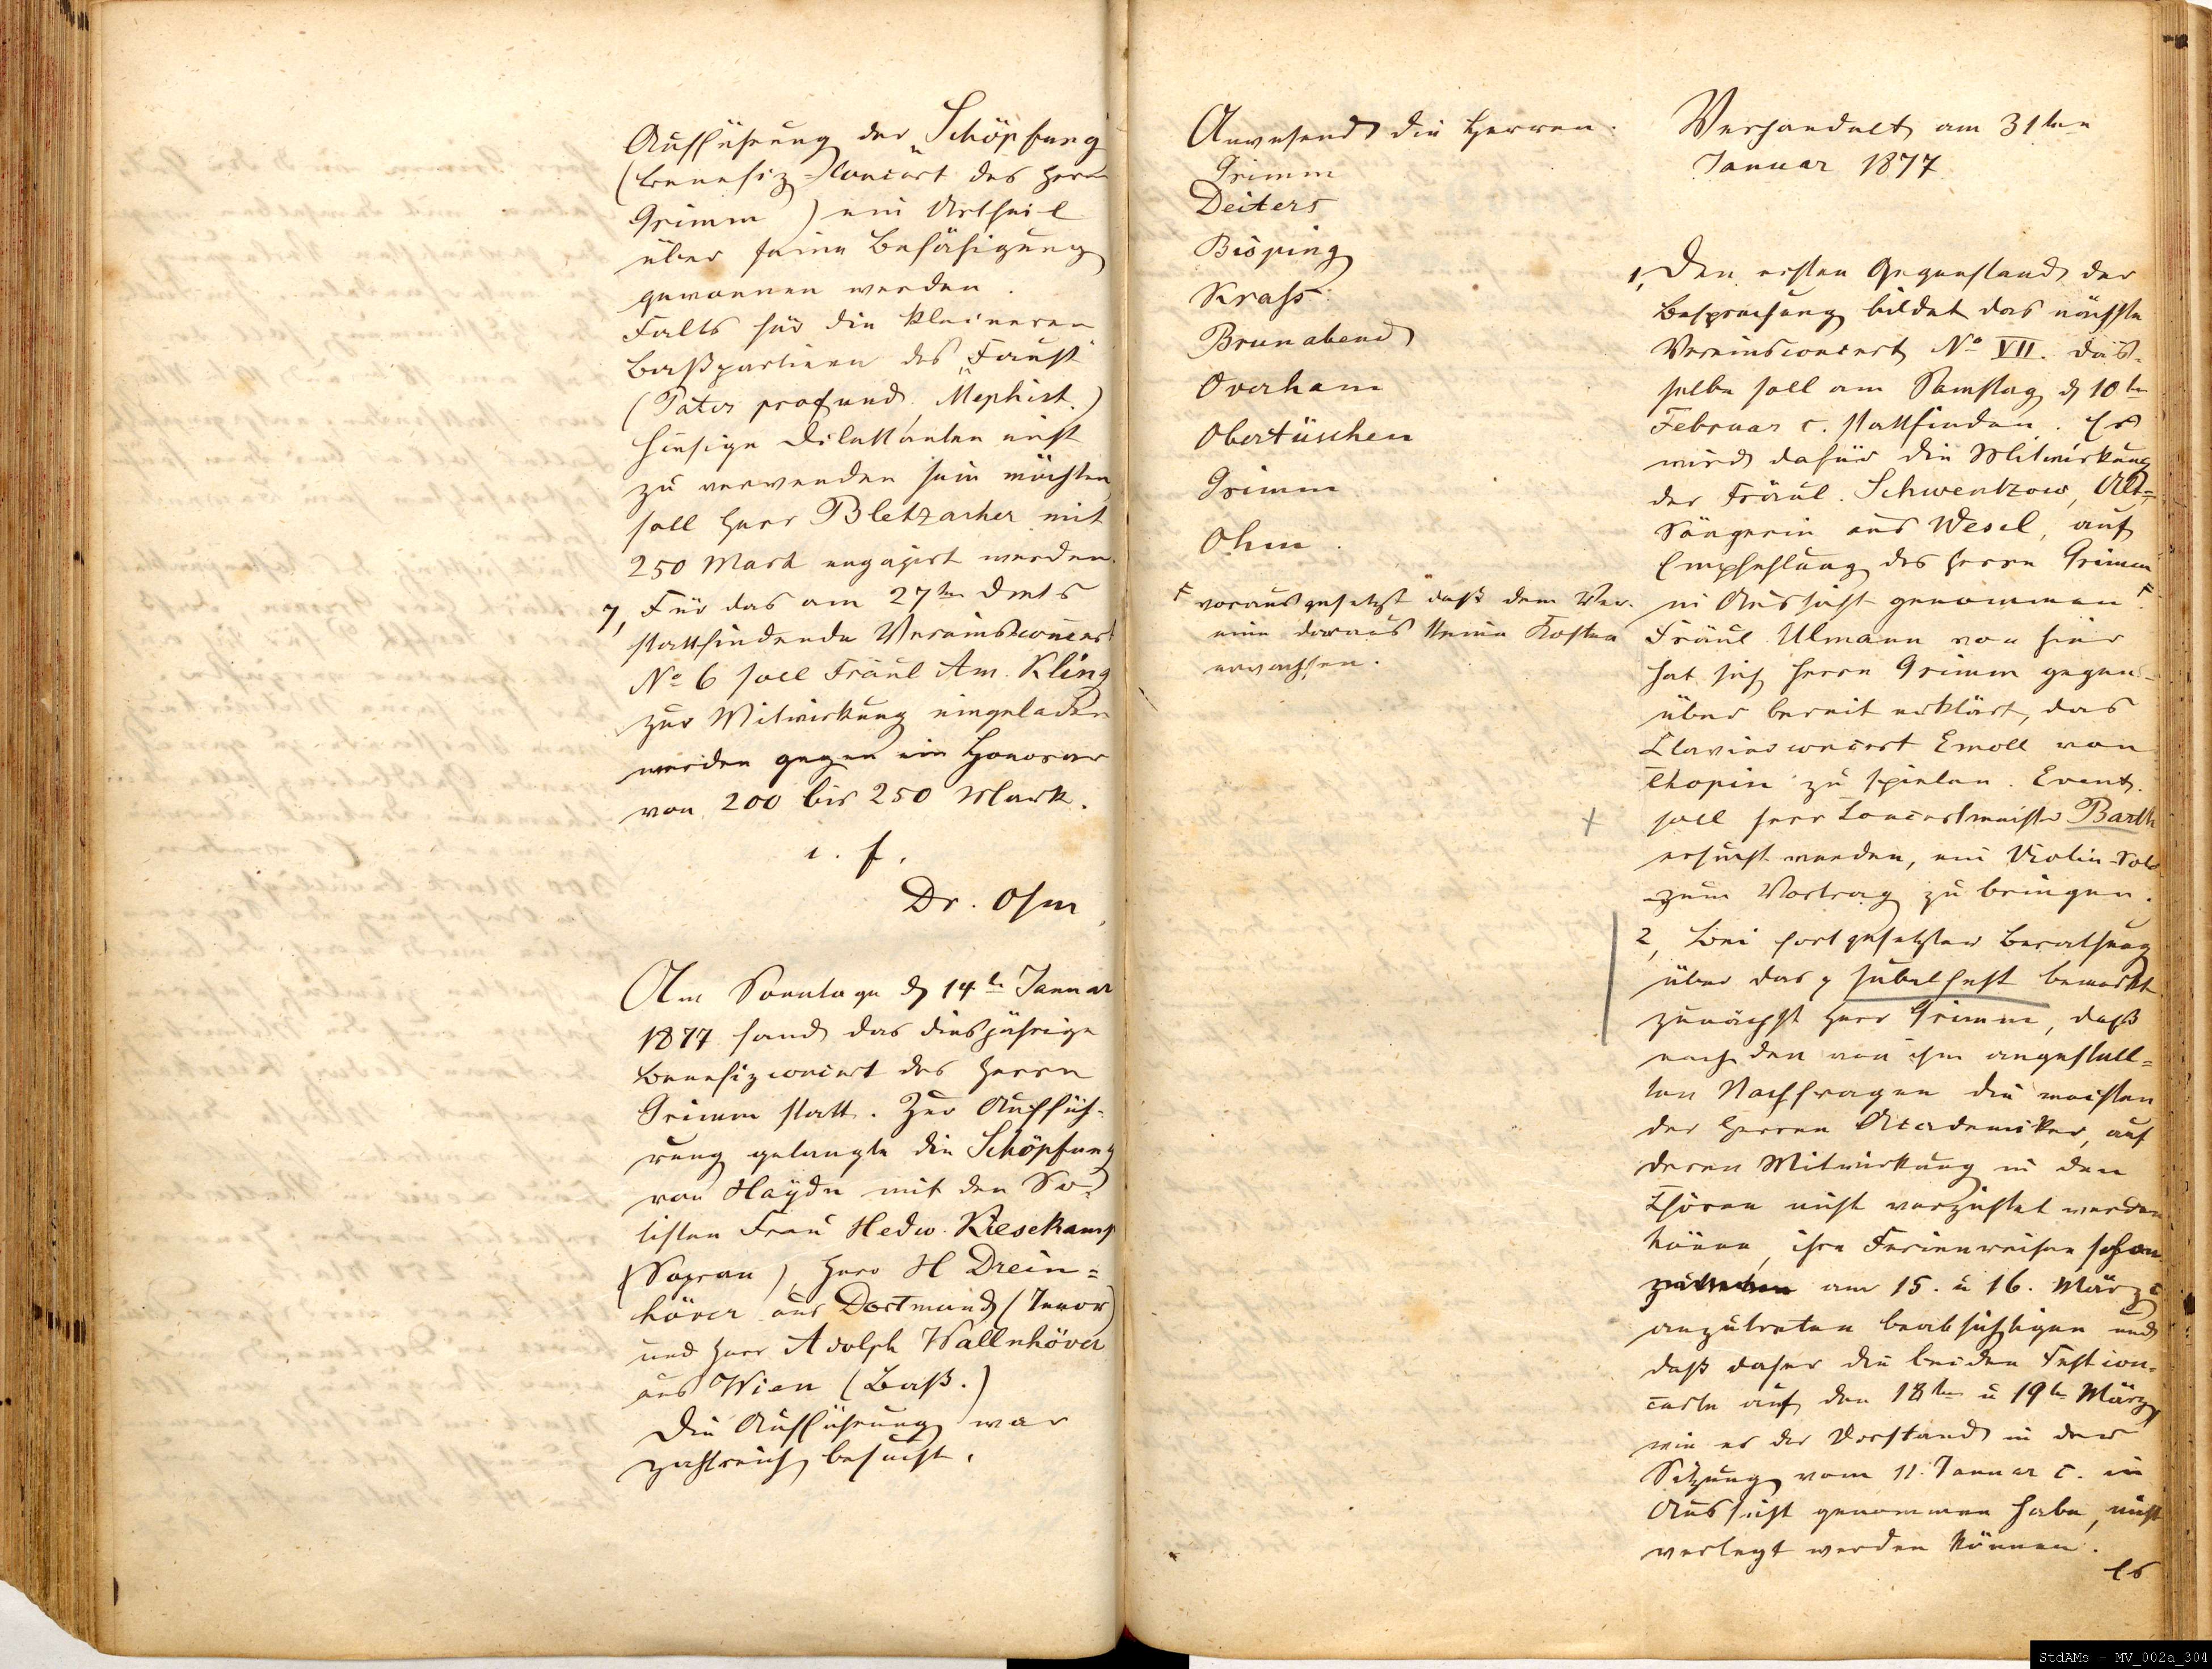 Aufführung der „Schöpfung"
(Benefiz-Concert des Herrn
Grimm) ein Urtheil
über seine Befähigung
gewonnen werden.
Falls für die kleineren
Baßpartieen des „Faust"
(Pater profund. Mephist.)
hiesige Dilettanten nicht
zu verwenden sein möchten,
soll Herr Bletzacher mit
250 Mark engagirt werden.
7, Für das am 27ten dMts
stattfindende Vereinsconcert
No 6 soll Fräul Am. Kling
zur Mitwirkung eingeladen
werden gegen ein Honorar
von 200 bis 250 Mark.
Dr. Ohm
Am Sonntage d 14t Januar
1877 fand das diesjährige
Benefizconcert des Herrn
Grimm statt. Zur Auffüh-
rung gelangte die Schöpfung
von Haydn mit den So-
listen Frau Hedw. Kiesekamp
(Sopran), Herr H Drein=
höver aus Dortmund (Tenor)
und Herr Adolph Wallnhöver
aus Wien (Baß.)
Die Aufführung war
zahlreich besucht.
Anwesend die Herren.
Grimm
Deiters
Bisping
Krass
Brunabend
Overham
Obertüschen
Grimm
Ohm
F vorausgesetzt daß dem Ver-
eine daraus keine Kosten
erwachsen.
Verhandelt am 31ten
Januar 1877
1, Den ersten Gegenstand der
Besprechung bildet das nächste
Vereinsconcert No VII. das-
selbe soll am Samstag d 10ten
Februar c. stattfinden. Es
wird dafür die Mitwirkung
der Fräul. Schwentzow, Alt=
Sängerin aus Wesel, auf
Empfehlung des Herrn Grimm
in Aussicht genommen F.
Fräul Ulmann von hier
hat sich Herrn Grimm gegen-
über bereit erklärt, das
Clavierconcert Emoll von
Chopin zu spielen. Event.
soll Herr Concertmeister Barth
ersucht werden, ein Violin-Solo
zum Vortrag zu bringen.
2, Bei fortgesetzter Berathung
über das Jubelfest bemerkt
zunächst Herr Grimm, daß
nach den von ihm angestell=
ten Nachfragen die meisten
der Herren Academiker, auf
deren Mitwirkung in den
Chören nicht verzichtet werden
könne, ihre Ferienreisen schon
am 15. u 16. März c
anzutreten beabsichtigen und
daß daher die beiden Festcon-
certe auf den 18ten u 19ten März,
wie es der Vorstand in der
Sitzung vom 11. Januar c. in
Aussicht genommen habe, nicht
verlegt werden können.
Es
StdAMs - MV_002a_304